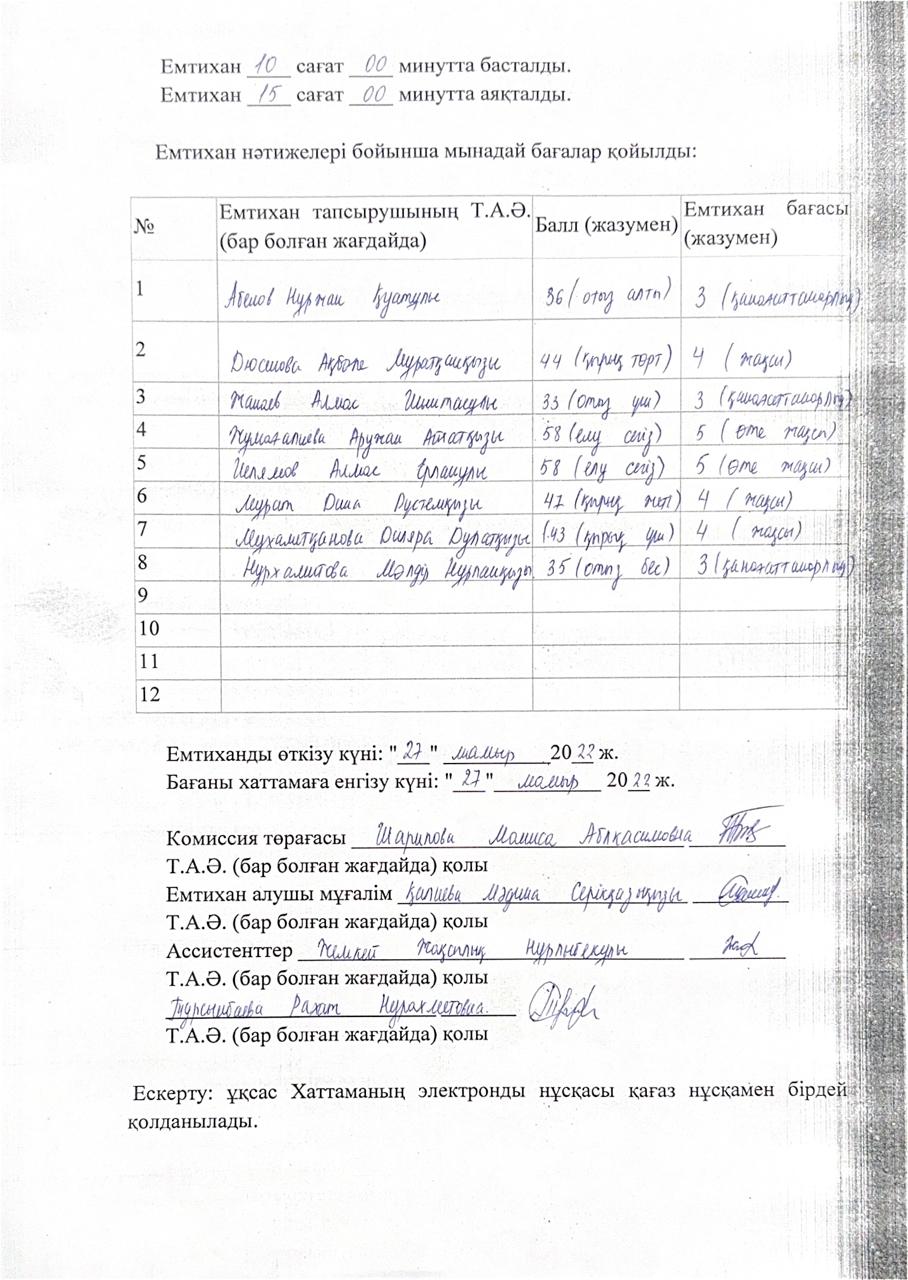 Емтихан 10 сағат 00 минутта басталды.
Емтихан 15 сағат 00 минутта аяқталды.
Емтихан нәтижелері бойынша мынадай бағалар қойылды:
№ Емтихан тапсырушының Т.А.Ә. (бар болған жағдайда) Балл (жазумен) Емтихан бағасы (жазумен)
1 Абенов Нуржан Қуатұлы 36 (отыз алты) 3 (қанағаттанарлық)
2 Дюсенова Ақбөпе Мұратқанқызы 44 (қырық төрт) 4 (жақсы)
3 Жанаев Алмас 33 (отыз үш) 3 (қанағаттанарлық)
4 Жумағалиева Аружан Азаматқызы 58 (елу сегіз) 5 (өте жақсы)
5 Алмас Ерланұлы 58 (елу сегіз) 5 (өте жақсы)
6 Мурат Дина Рустемқызы 47 (қырық жеті) 4 (жақсы)
7 Мухаметқанова Диляра Дулатқызы 43 (қырық үш) 4 (жақсы)
8 Нурхамитова Мөлдір Нурланқызы 35 (отыз бес) 3 (қанағаттанарлық)
9
10
11
12
Емтиханды өткізу күні: "27" мамыр 2022 ж.
Бағаны хаттамаға енгізу күні: "27" мамыр 2022 ж.
Комиссия төрағасы Шарипова Маниса Абикасимовна
Т.А.Ә. (бар болған жағдайда) қолы
Емтихан алушы мұғалім Қалиева Мәдина Серікқазықызы
Т.А.Ә. (бар болған жағдайда) қолы
Ассистенттер Жемкей Жақсылық Нұрлыбекұлы
Т.А.Ә. (бар болған жағдайда) қолы
Тұрсынбаева Рахат Нурахметовна.
Т.А.Ә. (бар болған жағдайда) қолы
Ескерту: ұқсас Хаттаманың электронды нұсқасы қағаз нұсқамен бірдей
қолданылады.